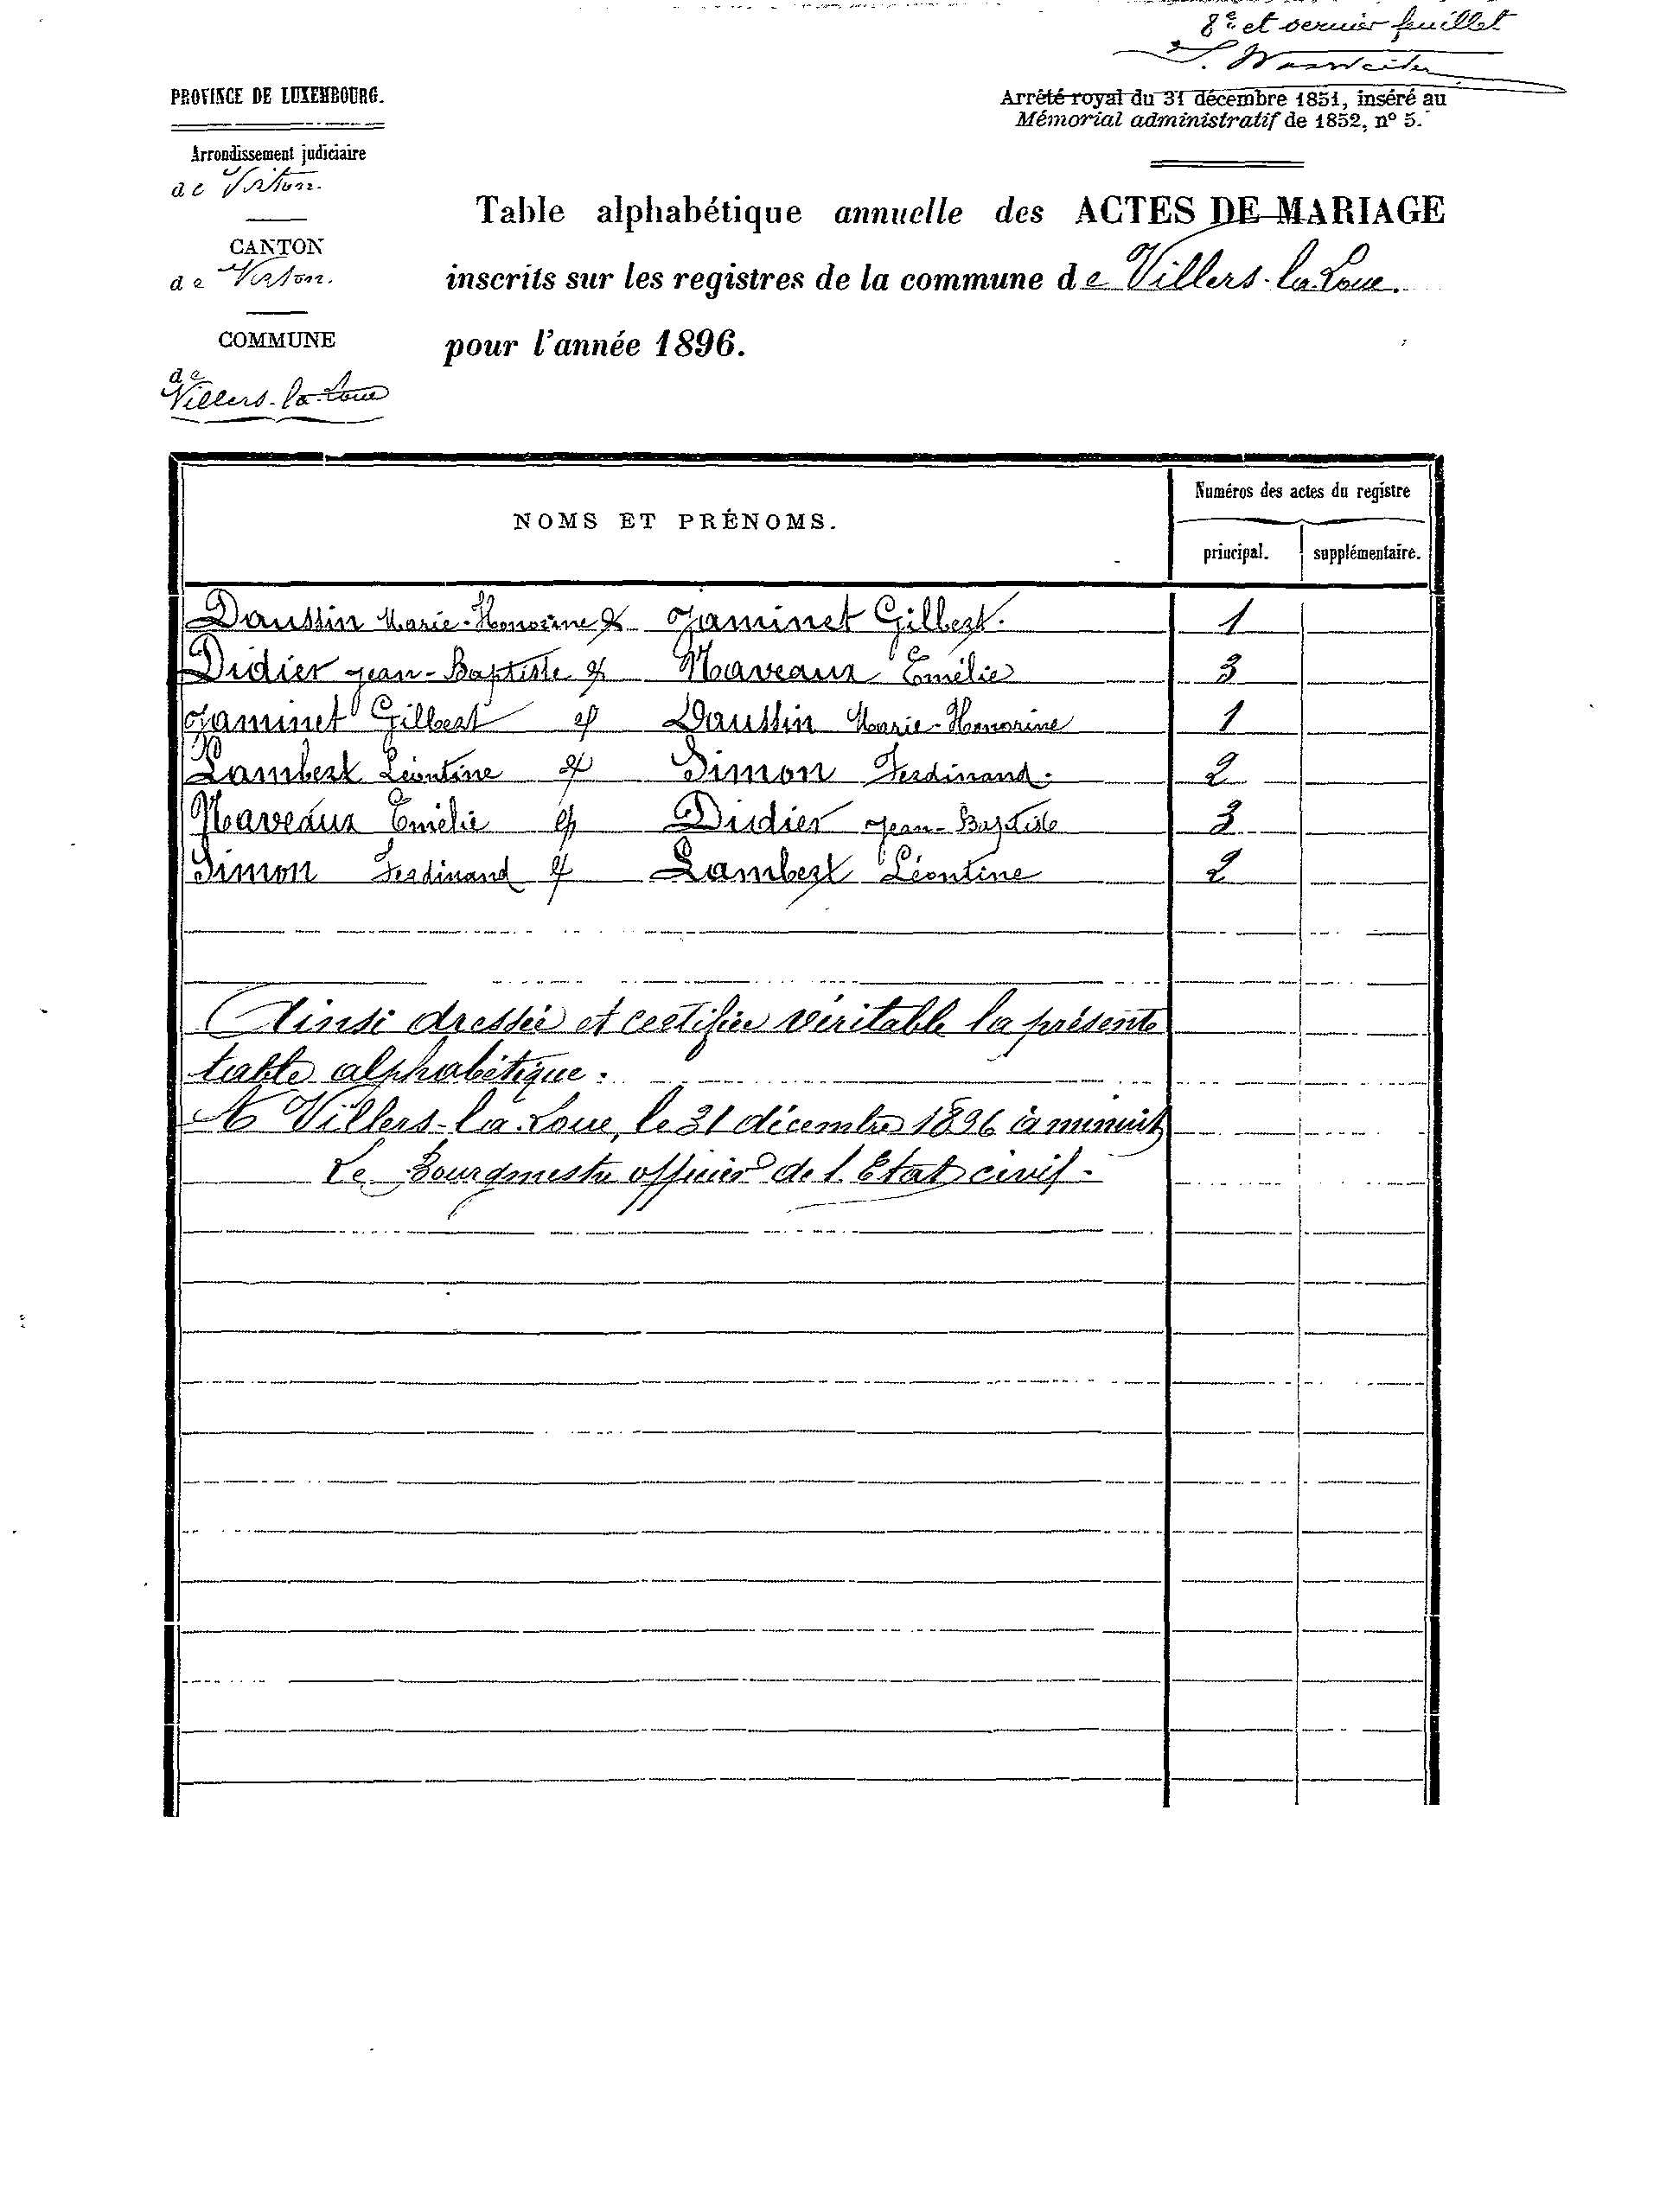 8e et dernier feuillet
PROVINCE DE LUXEMBOURG.
Arrêté royal du 31 décembre 1851, inséré au
Mémorial administratif de 1852, nº 5.
Arrondissement judiciaire
de Virton.
CANTON
de Virton.
COMMUNE
de
Villers-la-Loue
Table alphabétique annuelle des ACTES DE MARIAGE
inscrits sur les registres de la commune de Villers-la-Loue.
pour l'année 1896.
NOMS ET PRÉNOMS.
Numéros des actes du registre
principal. supplémentaire.
Daussin Marie-Honorine & Jaminet Gilbert. 1
Didier Jean-Baptiste & Maveaux Emélie 3
Jaminet Gilbert & Daussin Marie-Honorine 1
Lambert Léontine & Simon Ferdinand. 2
Maveaux Emélie & Didier Jean-Baptiste 3
Simon Ferdinand & Lambert Léontine 2
Ainsi dressée et certifiée véritable la présente
table alphabétique.
A Villers-la-Loue, le 31 décembre 1896 à minuit
Le Bourgmestre officier de l'Etat civil.